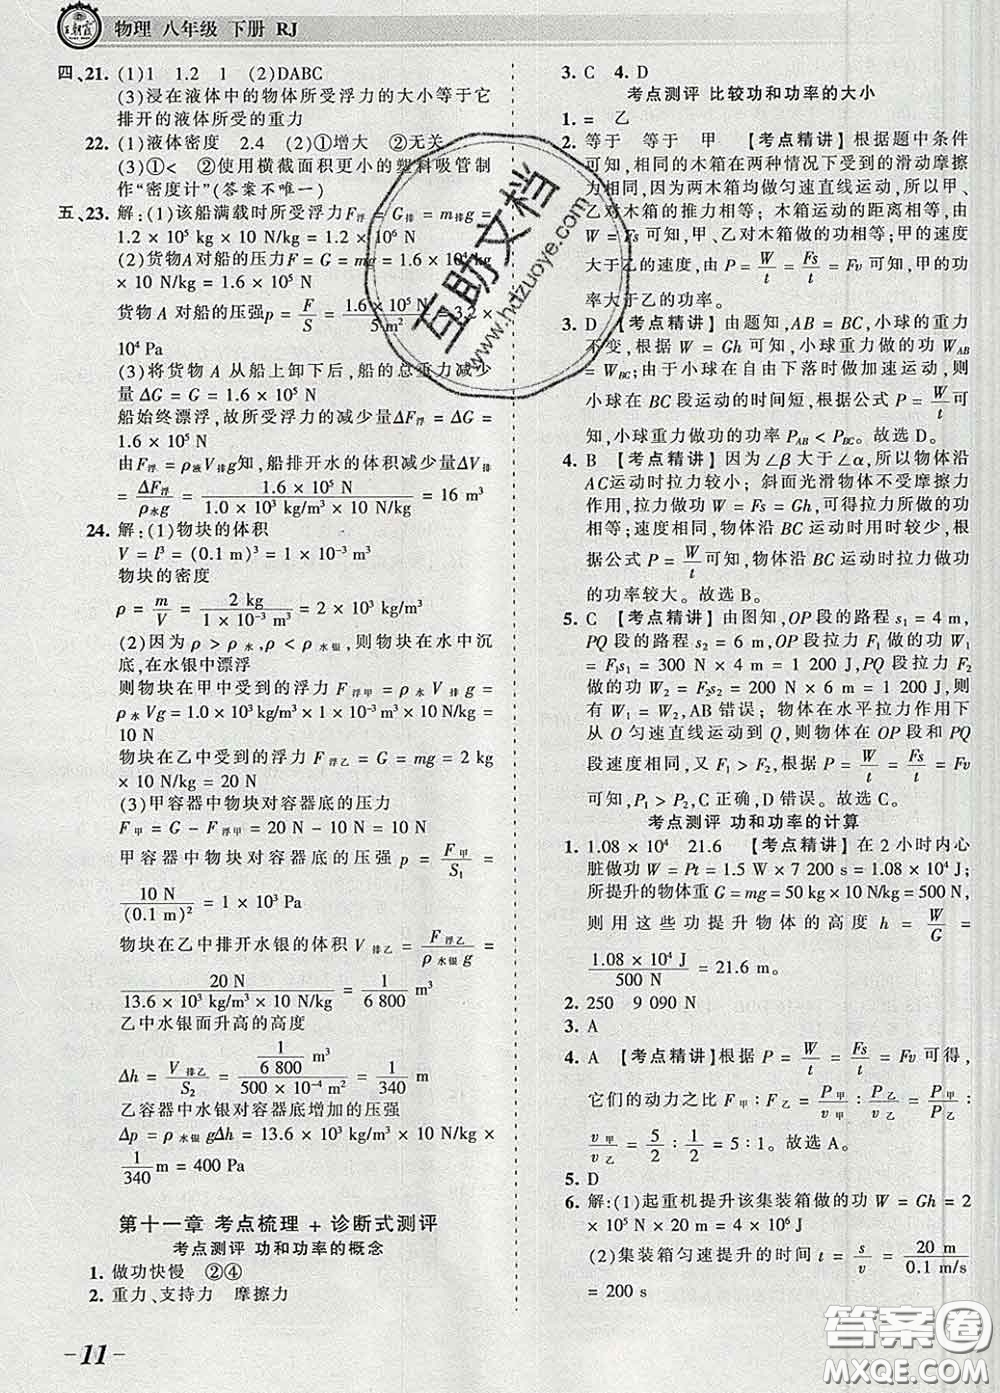 王朝霞
物理 八年级 下册 RJ
四、21. (1)1 1.2 1 (2)DABC
(3)浸在液体中的物体所受浮力的大小等于它
排开的液体所受的重力
22. (1)液体密度 2.4 (2)①增大 ②无关
(3)①< ②使用横截面积更小的塑料吸管制
作“密度计”(答案不唯一)
五、23. 解:(1)该船满载时所受浮力F浮 = G排 = m排g =
1.2 × 10⁵ kg × 10 N/kg = 1.2 × 10⁶ N
(2)货物A对船的压力F = G = mg = 1.6 × 10⁴ kg
× 10 N/kg = 1.6 × 10⁵ N
货物 A 对船的压强p = F/S = 1.6 × 10⁵ N/5 m² = 3.2 ×
10⁴ Pa
(3)将货物 A 从船上卸下后,船的总重力减少
量 ΔG = G = 1.6 × 10⁵ N
船始终漂浮,故所受浮力的减少量ΔF浮 = ΔG =
1.6 × 10⁵ N
由F浮 = ρ液V排g知,船排开水的体积减少量ΔV排
= ΔF浮/ρ水g = 1.6 × 10⁵ N/1.0 × 10³ kg/m³ × 10 N/kg = 16 m³
24. 解:(1)物块的体积
V = l³ = (0.1 m)³ = 1 × 10⁻³ m³
物块的密度
ρ = m/V = 2 kg/1 × 10⁻³ m³ = 2 × 10³ kg/m³
(2)因为 ρ > ρ水,ρ < ρ水银,则物块在水中沉
底,在水银中漂浮
则物块在甲中受到的浮力 F浮甲 = ρ水V排g =
ρ水Vg = 1.0 × 10³ kg/m³ × 1 × 10⁻³ m³ × 10 N/kg =
10 N
物块在乙中受到的浮力 F浮乙 = G = mg = 2 kg
× 10 N/kg = 20 N
(3)甲容器中物块对容器底的压力
F甲 = G − F浮甲 = 20 N − 10 N = 10 N
甲容器中物块对容器底的压强 p = F甲/S₁ =
10 N/(0.1 m)² = 1 × 10³ Pa
物块在乙中排开水银的体积 V排乙 = F浮乙/ρ水银g =
20 N/13.6 × 10³ kg/m³ × 10 N/kg = 1/6 800 m³
乙中水银面升高的高度
Δh = V排乙/S₂ = 1/6 800 m³/500 × 10⁻⁴ m² = 1/340 m
乙容器中水银对容器底增加的压强
Δp = ρ水银gΔh = 13.6 × 10³ kg/m³ × 10 N/kg ×
1/340 m = 400 Pa
第十一章 考点梳理 + 诊断式测评
考点测评 功和功率的概念
1. 做功快慢 ②④
2. 重力、支持力 摩擦力
3. C 4. D
考点测评 比较功和功率的大小
1. = 乙
2. 等于 等于 甲 【考点精讲】根据题中条件
可知,相同的木箱在两种情况下受到的滑动摩擦
力相同,因为两木箱均做匀速直线运动,所以甲、
乙对木箱的推力相等;木箱运动的距离相等,由
W = Fs 可知,甲、乙对木箱做的功相等;甲的速度
大于乙的速度,由 P = W/t = Fs/t = Fv 可知,甲的功
率大于乙的功率。
3. D 【考点精讲】由题知,AB = BC,小球的重力
不变,根据 W = Gh 可知,小球重力做的功 W_AB
= W_BC;由于小球在自由下落时做加速运动,则
小球在 BC 段运动的时间短,根据公式 P = W/t 可
知,小球重力做功的功率 P_AB < P_BC。故选 D。
4. B 【考点精讲】因为∠β 大于∠α,所以物体沿
AC运动时拉力较小;斜面光滑物体不受摩擦力
作用,拉力做功 W = Fs = Gh,可得拉力所做的功
相等;速度相同,物体沿 BC 运动时用时较少,根
据公式 P = W/t 可知,物体沿 BC 运动时拉力做功
的功率较大。故选 B。
5. C 【考点精讲】由图知,OP 段的路程 s₁ = 4 m,
PQ 段的路程 s₂ = 6 m,OP 段拉力 F₁ 做的功 W₁
= F₁s₁ = 300 N × 4 m = 1 200 J,PQ 段拉力 F₂
做的功 W₂ = F₂s₂ = 200 N × 6 m = 1 200 J,则
有 W₁ = W₂,AB 错误;物体在水平拉力作用下
从 O 匀速直线运动到 Q,则物体在 OP 段和 PQ
段速度相同,又 F₁ > F₂,根据 P = W/t = Fs/t = Fv
可知,P₁ > P₂,C 正确,D 错误。故选 C。
考点测评 功和功率的计算
1. 1.08 × 10⁴ 21.6 【考点精讲】在 2 小时内心
脏做功 W = Pt = 1.5 W × 7 200 s = 1.08 × 10⁴ J;
所提升的物体重 G = mg = 50 kg × 10 N/kg = 500 N,
则用这些功提升物体的高度 h = W/G =
1.08 × 10⁴ J/500 N = 21.6 m。
2. 250 9 090 N
3. A
4. A 【考点精讲】根据 P = W/t = Fs/t = Fv 可得,
它们的动力之比 F甲 : F乙 = P甲/v甲 : P乙/v乙 = P甲/P乙 :
v甲/v乙 = 5/2 : 1/2 = 5 : 1。故选 A。
5. D
6. 解:(1)起重机提升该集装箱做的功 W = Gh = 2
× 10⁵ N × 20 m = 4 × 10⁶ J
(2)集装箱匀速提升的时间 t = s/v = 20 m/0.1 m/s
= 200 s
- 11 -
互助文档
www.hdzuoye.com
答案圈
MXQE.COM